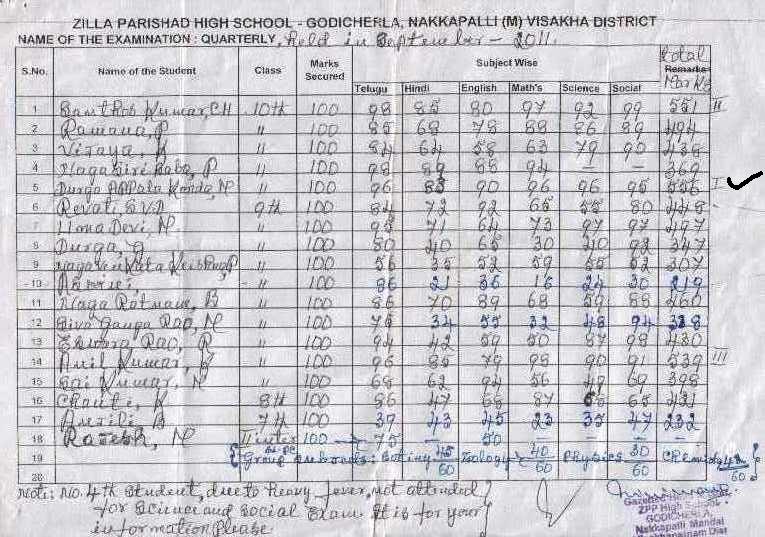 ZILLA PARISHAD HIGH SCHOOL - GODICHERLA, NAKKAPALLI (M) VISAKHA DISTRICT
NAME OF THE EXAMINATION : QUARTERLY, held in September - 2011.
S.No. Name of the Student Class Marks Secured Subject Wise Total Remarks Marks
Telugu Hindi English Math's Science Social
1 Santhosh Kumar, CH 10th 100 98 85 80 97 92 99 551 II
2 Ramana, P " 100 85 68 78 88 86 89 494
3 Vijaya, " 100 84 64 58 63 79 90 438
4 Nagasiri Babu, P " 100 98 89 88 94 - - 369
5 Durga APPala Konda, N " 100 96 83 90 96 96 95 556 I
6 Revati 9th 100 84 72 92 65 55 80 448
7 Uma Devi, N. " 100 95 71 64 73 97 97 497
8 Durga, G " 100 80 40 65 30 40 92 347
9 " 100 56 35 52 59 55 52 307
10 " 100 86 21 36 16 24 30 219
11 Naga Ratnam, B " 100 86 70 89 68 59 88 460
12 Siva Ganga Rao, N " 100 75 34 55 32 48 94 338
13 Eswara Rao, R " 100 94 42 59 50 87 98 430
14 Anil Kumar, " 100 96 85 79 98 90 91 539 III
15 Sai Kumar, N " 100 68 62 94 56 49 69 398
16 K 8th 100 86 47 66 87 65 431
17 Anjili, B 7th 100 39 43 45 23 35 47 232
18 Rajesh, N II inter 100 → 75 - 50 - - -
19 Group subjects: Botiny 45/60 Zoology 40/60 Physics 30/60 Chemistry 60
20
Note: No. 4th Student, due to heavy fever, not attended
for Science and Social Exam. It is for your
information Please
ZPP High School
GODICHERLA,
Nakkapalli Mandal